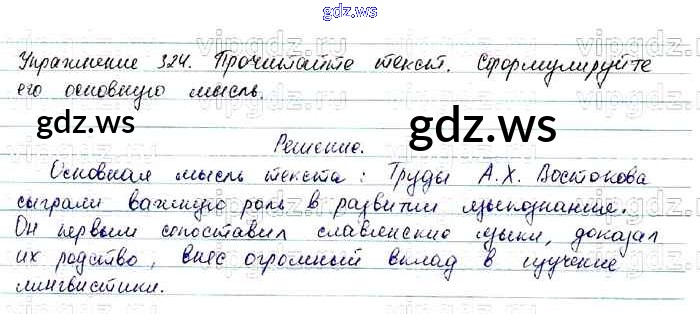 gdz.ws
Упражнение 324. Прочитайте текст. Сформулируйте
его основную мысль.
gdz.ws gdz.ws
Решение.
Основная мысль текста: Труды А.Х. Востокова
сыграли важную роль в развитии языкознание.
Он первым сопоставил славянские языки, доказал
их родство, внёс огромный вклад в изучение
лингвистики.